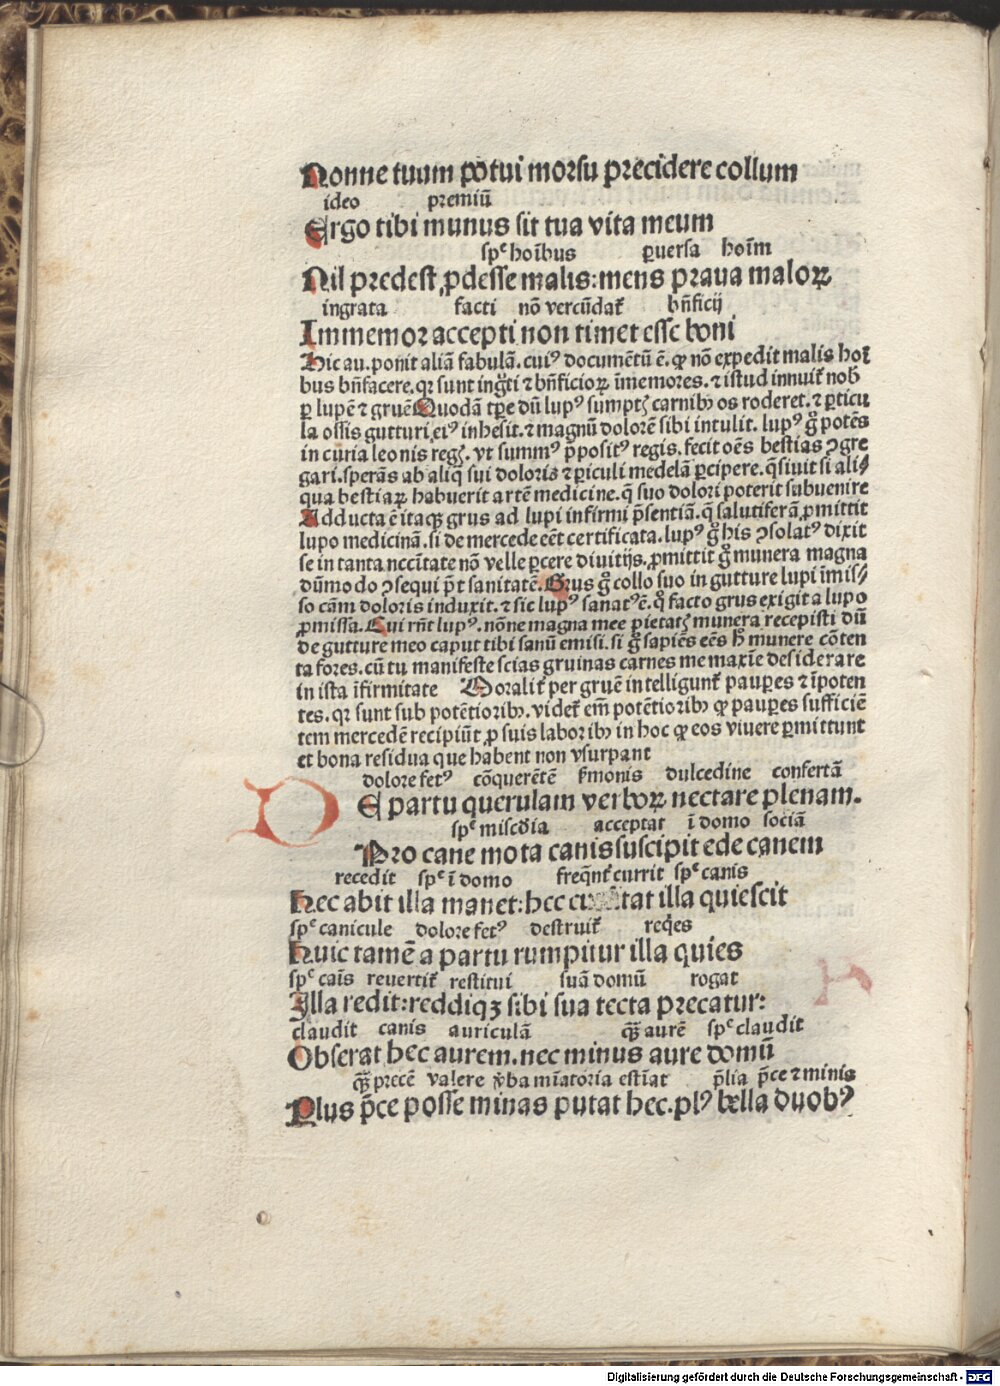 Nonne tuum potui morsu precidere collum
ideo premiū
Ergo tibi munus sit tua vita meum
spe hoībus ꝑuersa hoīm
Nil predest ꝓdesse malis: mens praua maloꝝ
ingrata facti nō vercūdat᷑ bn̄ficij
Immemor accepti non timet esse boni
Hic au. ponit aliā fabulā. cuiꝰ documētū ē. ꝙ nō expedit malis hoī
bus bn̄facere. qꝛ sunt ingͣti ⁊ bn̄ficioꝝ īmemores. ⁊ istud innuit᷑ nob̄
ꝑ lupē ⁊ gruē Quodā tꝑe dū lupꝰ sumptꝭ carnibꝫ os roderet. ⁊ ꝑticu
la ossis gutturi eiꝰ inhesit. ⁊ magnū dolorē sibi intulit. lupꝰ gͦ potēs
in curia leonis regꝭ. vt summꝰ p̄positꝰ regis. fecit oēs bestias ꝯgre
gari. sperās ab aliq̄ sui doloris ⁊ ꝑiculi medelā ꝑcipere. q̄siuit si ali⸗
qua bestiaꝝ habuerit artē medicine. q̄ suo dolori poterit subuenire
Adducta ē itaqꝫ grus ad lupi infirmi p̄sentiā. q̄ salutiferā ꝓmittit
lupo medicinā. si de mercede eēt certificata. lupꝰ gͦ his ꝯsolatꝰ dixit
se in tanta nccītate nō velle ꝑcere diuitijs. ꝓmittit gͦ munera magna
dūmodo ꝯsequi p̄t sanitatē. Grus gͦ collo suo in gutture lupi īmis⸗
so cām doloris induxit. ⁊ sic lupꝰ sanatꝰ ē. q̊ facto grus exigit a lupo
ꝓmissa. Cui rn̄t lupꝰ. nōne magna mee pietatꝭ munera recepisti dū
de gutture meo caput tibi sanū emisi. si gͦ sapiēs eēs h̄ munere cōten
ta fores. cū tu manifeste scias gruinas carnes me maxīe desiderare
in ista īfirmitate Moralit᷑ per gruē intelligunt᷑ pauꝑes ⁊ īpoten
tes. qꝛ sunt sub potētioribꝫ. videt᷑ em̄ potētioribꝫ ꝙ pauꝑes sufficiē
tem mercedē recipiūt ꝓ suis laboribꝫ in hoc ꝙ eos viuere ꝑmittunt
et bona residua que habent non vsurpant
dolore fetꝰ cōquerētē s̄monis dulcedine confertā
DE partu querulam verboꝝ nectare plenam.
spe misc̄dia acceptat ī domo sociā
Pro cane mota canis suscipit ede canem
recedit spe ī domo freq̄nt᷑ currit spe canis
Hec abit illa manet: hec tat illa quiescit
spe canicule dolore fetꝰ destruit᷑ reqͥes
Huic tamē a partu rumpitur illa quies
spe caīs reuertit᷑ restitui suā domū rogat
Illa redit: reddiqꝫ sibi sua tecta precatur:
claudit canis auriculā qͣꝫ aurē spe claudit
Obserat hec aurem. nec minus aure domū
qͣꝫ precē valere v̄ba mīatoria estīat p̄lia p̄ce ⁊ minis
Plus p̄ce posse minas putat hec. plꝰ bella duobꝰ
Digitalisierung gefördert durch die Deutsche Forschungsgemeinschaft - DFG